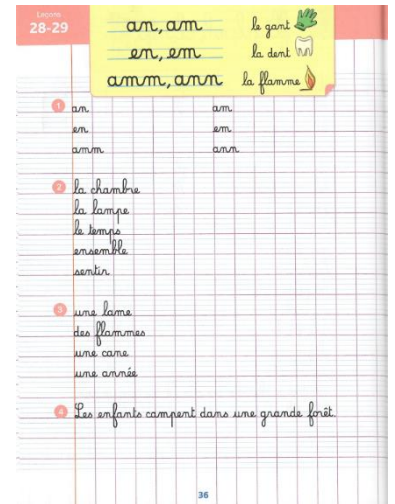 Leçons
28-29
an, am
le gant
en, em
la dent
amm, ann
la flamme
1 an am
en em
amm ann
2 la chambre
la lampe
le temps
ensemble
sentir
3 une lame
des flammes
une cane
une année
4 Les enfants campent dans une grande forêt.
36